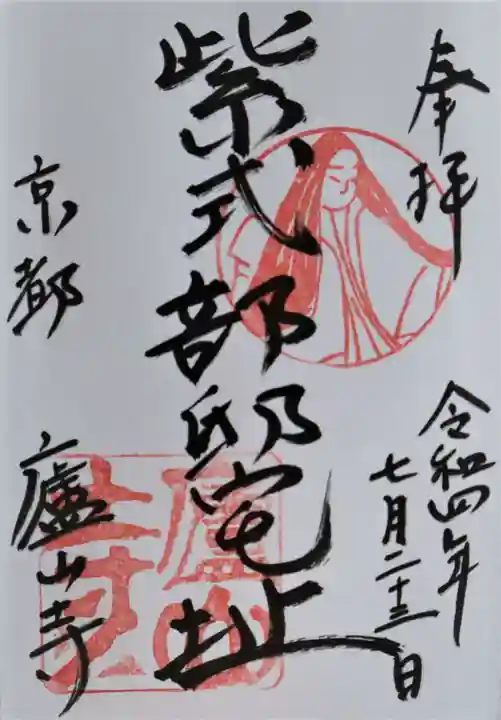 奉拝
令和四年
七月二十三日
紫式部邸宅址
京都
廬山寺
廬山寺